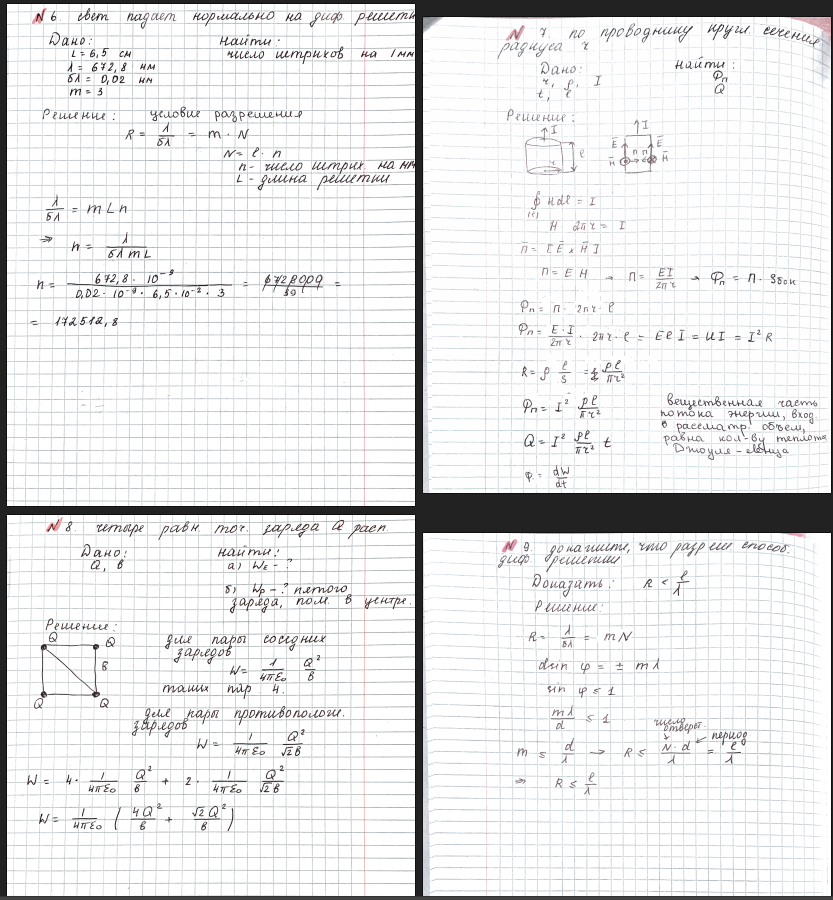 N 6. свет падает нормально на диф. решетк
Дано:
L = 6,5 см
λ = 672,8 нм
δλ = 0,02 нм
m = 3
Найти:
число штрихов на 1мм
Решение: условие разрешения
R = λ/δλ = m · N
N = l · n
n - число штрих. на мм
L - длина решетки
λ/δλ = m L n
⇒ n = λ/(δλ m L)
n = 672,8 · 10⁻⁹/(0,02 · 10⁻⁹ · 6,5 · 10⁻² · 3) = 6728000/39 =
= 172512,8
N 7. по проводнику кругл. сечения
радиуса r
Дано:
r, ρ, I
t, l
Найти:
Φп
Q
Решение:
I
l
r
I
E̅ E̅
H̅ П П H̅
∮ Hdl = I
(l)
H 2πr = I
П̅ = [E̅ x H̅]
П = E H → П = EI/2πr → Φп = П · Sбок
Φп = П · 2πr · l
Φп = E·I/2πr · 2πr · l = E l I = UI = I² R
R = ρ l/S = ρl/πr²
Φп = I² ρl/πr²
Q = I² ρl/πr² t
φ = dW/dt
вещественная часть
потока энергии, вход.
в рассматр. объем,
равна кол-ву теплоты
Джоуля-Ленца
N 8. четыре равн. точ. заряда Q расп.
Дано:
Q, в
Найти:
а) Wε - ?
б) Wp - ? пятого
заряда, пом. в центре.
Решение:
Q Q
в
Q Q
для пары соседних
зарядов
W = 1/4πε₀ Q²/в
таких пар 4.
для пары противополож.
зарядов
W = 1/4πε₀ Q²/√2в
W = 4 · 1/4πε₀ Q²/в + 2 · 1/4πε₀ Q²/√2в
W = 1/4πε₀ (4Q²/в + √2Q²/в)
N 9. докажите, что разреш способ.
диф. решетки
Доказать: R < l/λ
Решение:
R = λ/δλ = mN
dsin φ = ± mλ
sin φ ≤ 1
mλ/d ≤ 1
число
отверст.
период
m ≤ d/λ → R ≤ N·d/λ = l/λ
⇒ R ≤ l/λ